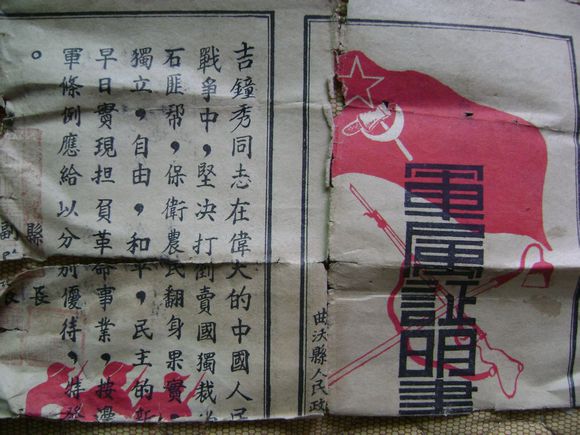 軍属証明書
曲沃縣人民政
吉鐘秀同志在偉大的中國人民
戰爭中，堅决打倒賣國獨裁
石匪帮，保衛農民翻身果實，
獨立，自由，和平，民主的新
早日實現担負革命事業，按
軍條例應給以分别優待，特發
。
縣長
副 長